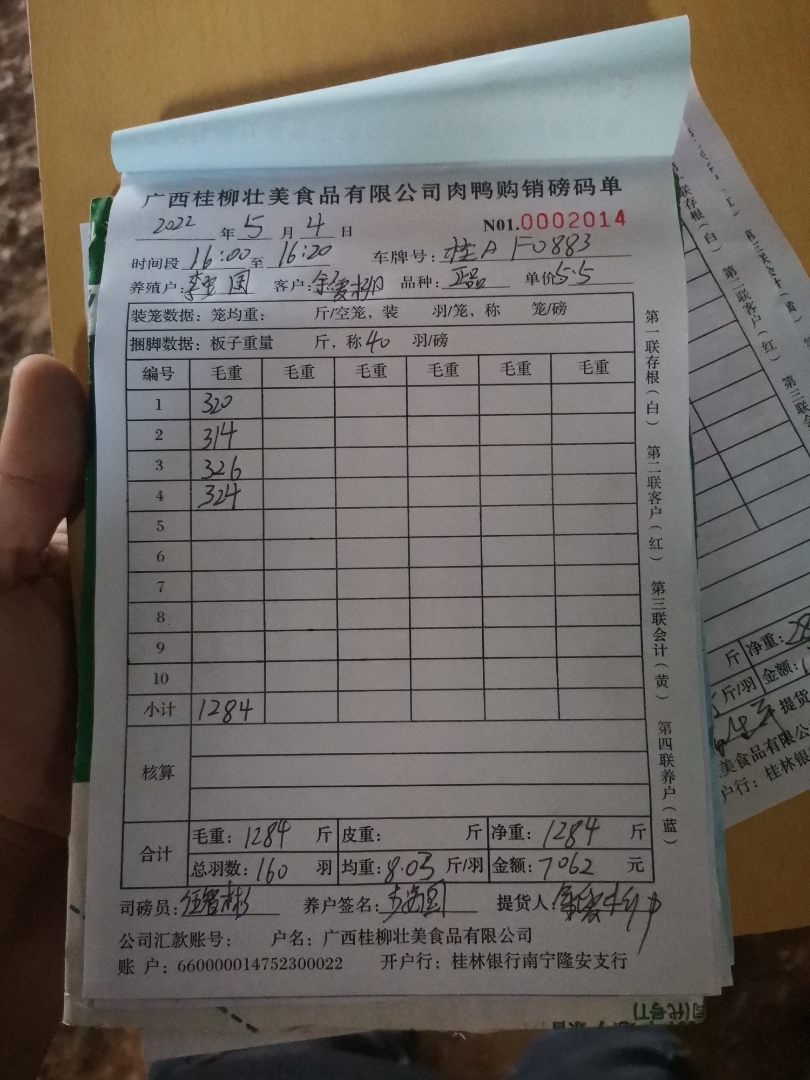 广西桂柳壮美食品有限公司肉鸭购销磅码单
2022 年 5 月 4 日 N01.0002014
时间段 16:00 至 16:20 车牌号: 桂A F0883
养殖户: 国 客户: 余爱柳 品种: 正品 单价 5.5
装笼数据: 笼均重: 斤/空笼, 装 羽/笼, 称 笼/磅
捆脚数据: 板子重量 斤, 称 40 羽/磅
编号 毛重 毛重 毛重 毛重 毛重 毛重
1 320
2 314
3 326
4 324
5
6
7
8
9
10
小计 1284
核算
合计 毛重: 1284 斤 皮重: 斤 净重: 1284 斤
总羽数: 160 羽 均重: 8.03 斤/羽 金额: 7062 元
司磅员: 养户签名: 提货人:
公司汇款账号: 户名: 广西桂柳壮美食品有限公司
账 户: 660000014752300022 开户行: 桂林银行南宁隆安支行
第一联存根(白) 第二联客户(红) 第三联会计(黄) 第四联养户(蓝)
联存根(白) 第二联客户(红) 第三联会
第三联会计(黄)
斤 净重: 28
斤/羽 金额:
提货
美食品有限公
户行: 桂林银